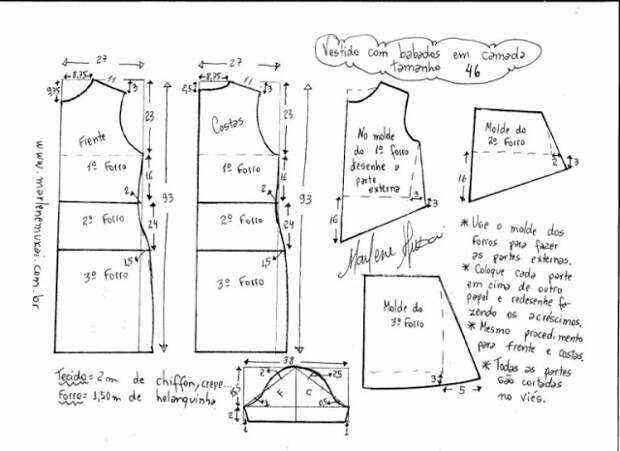 Vestido com babados em camada
tamanho 46
27
8,75
11
3
9,75
23
Frente
1º Forro
16
93
2
2º Forro
24
1,5
3º Forro
27
8,75
11
2,5
3
23
Costas
1º Forro
16
93
2
2º Forro
24
1,5
3º Forro
www.marlenemukai.com.br
No molde
do 1º forro
desenhe a
parte
externa
3
3
16
Marlene Mukai
Molde do
2º Forro
2
3
16
Molde do
3º Forro
3
5
* Use o molde dos
forros para fazer
as partes externas.
* Coloque cada parte
em cima de outro
papel e redesenhe fa-
zendo os acréscimos.
* Mesmo procedimento
para frente e costas.
* Todas as partes
são cortadas
no viés.
38
2
2,5
F
C
1
0,5
2
1
1
Tecido = 2m de chiffon, crepe...
Forro = 1,50m de helanquinha